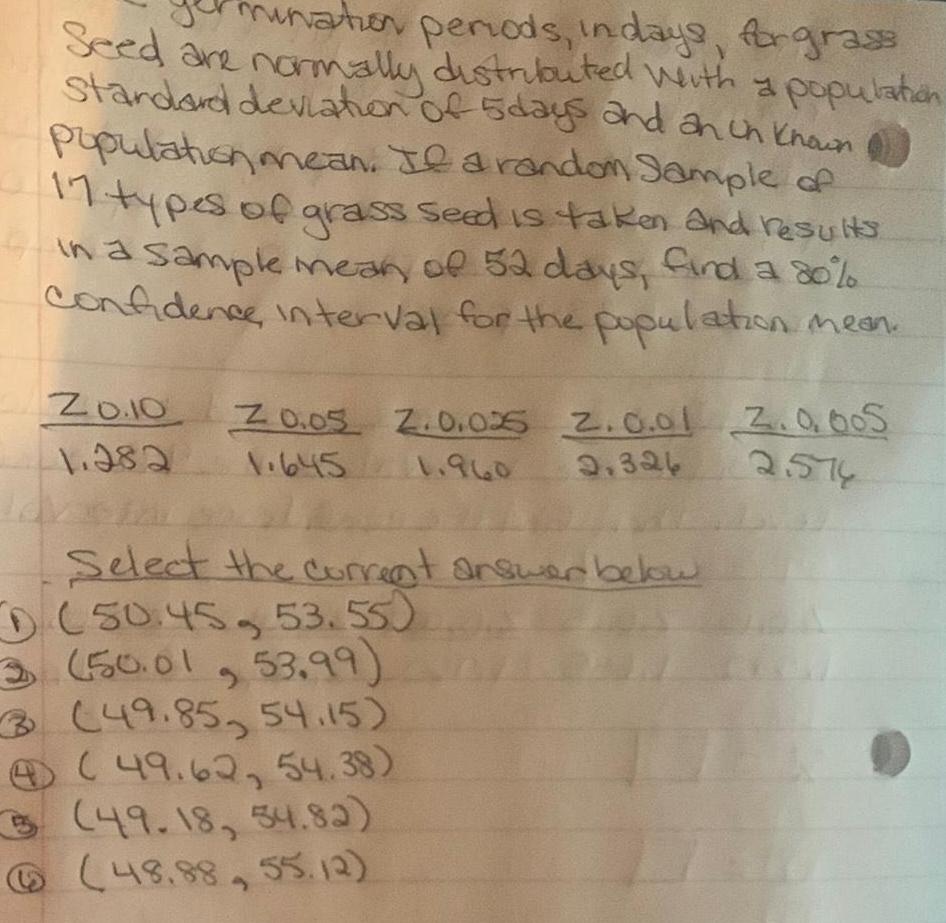 germination periods, in days, for grass
Seed are normally distributed with a population
Standard deviation of 5 days and an unknown
population, mean. If a random sample of
17 types of grass seed is taken and results
in a sample mean, of 52 days, find a 80%
Confidence, interval, for the population mean.
Z 0.10 Z 0.05 Z. 0.025 Z. 0.01 Z. 0.005
1.282 1.645 1.960 2.326 2.576
Select the current answer below
① (50.45, 53.55)
② (50.01, 53.99)
③ (49.85, 54.15)
④ (49.62, 54.38)
⑤ (49.18, 54.82)
⑥ (48.88, 55.12)